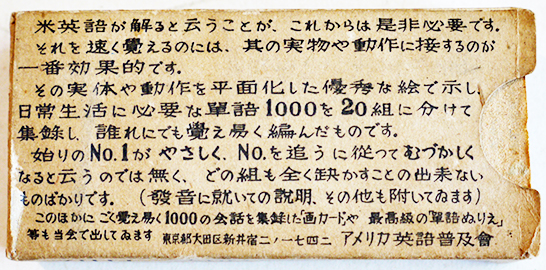 米英語が解ると云うことが、これからは是非必要です。
それを速く覺えるのには、其の実物や動作に接するのが
一番効果的です。
その実体や動作を平面化した優秀な絵で示し、
日常生活に必要な單語1000を20組に分けて
集録し、誰れにでも覺え易く編んだものです。
始りのNo.1がやさしく、No.を追うに從ってむづかしく
なると云うのでは無く、どの組も全く缺かすことの出耒ない
ものばかりです。(發音に就いての説明、その他も附いてゐます)
このほかにごく覺え易く1000の会話を集録した「画カード」や 最高級の「單語ぬりえ」
等も当会で出してゐます 東京都大田区新井宿二ノ一七四二 アメリカ英語普及會